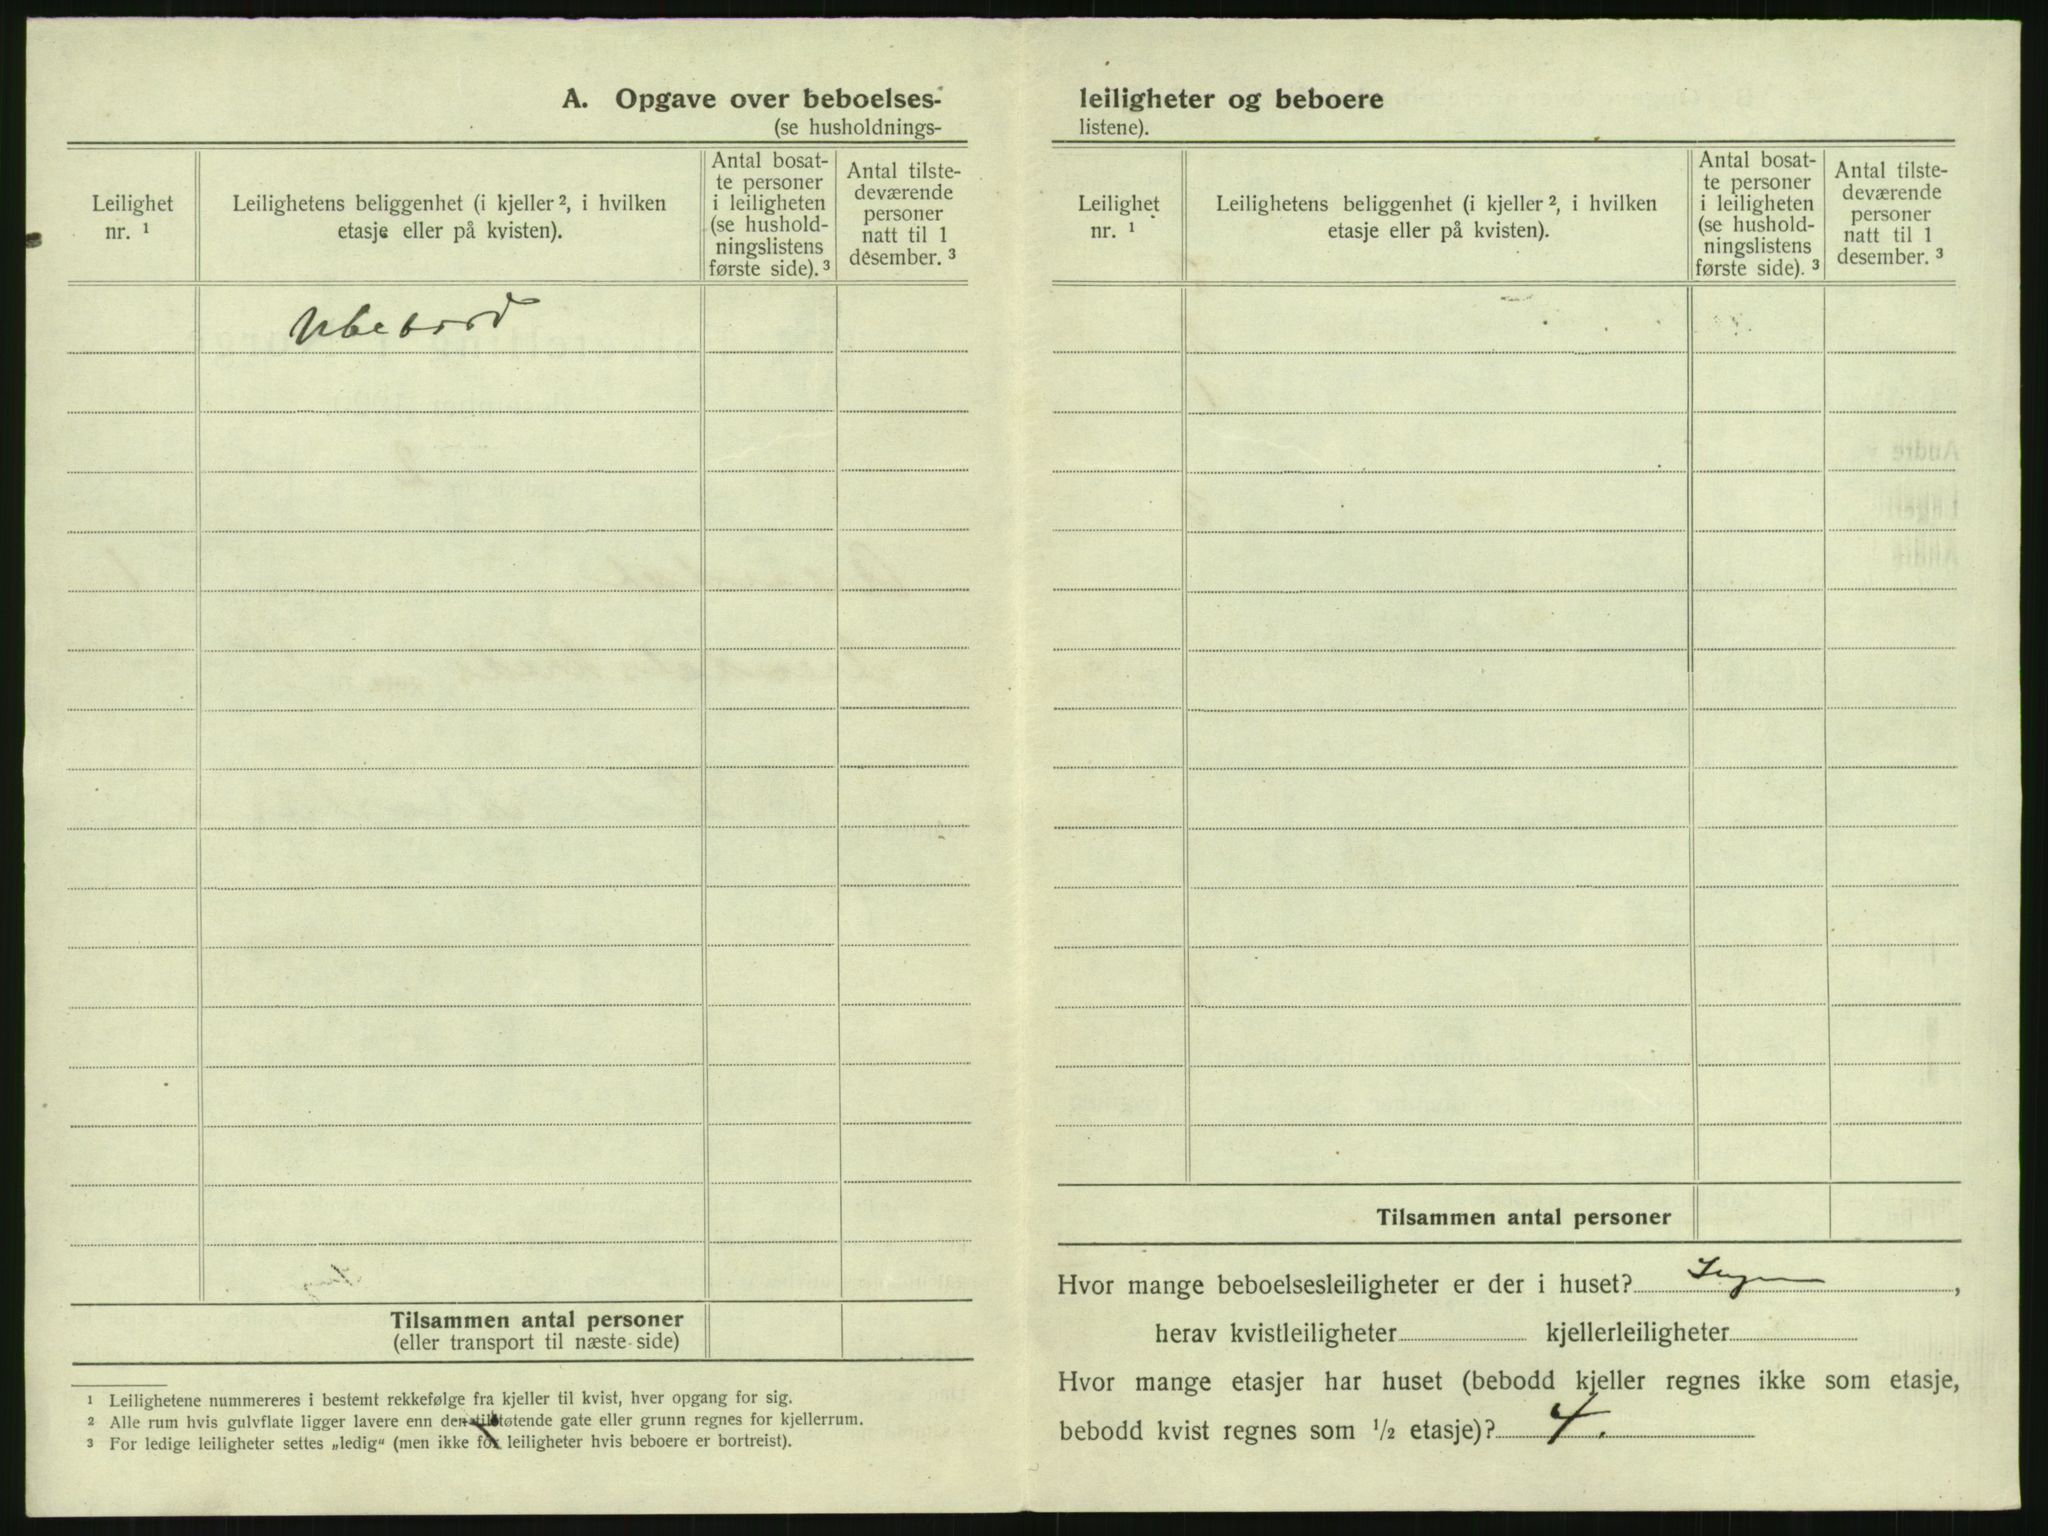 A. Opgave over beboelses-
(se husholdnings-
Leilighet
nr. ¹
Leilighetens beliggenhet (i kjeller ², i hvilken
etasje eller på kvisten).
Antal bosat-
te personer
i leiligheten
(se hushold-
ningslistens
første side). ³
Antal tilste-
deværende
personer
natt til 1
desember. ³
Ubebord
Tilsammen antal personer
(eller transport til næste side)
¹ Leilighetene nummereres i bestemt rekkefølge fra kjeller til kvist, hver opgang for sig.
² Alle rum hvis gulvflate ligger lavere enn den tilstøtende gate eller grunn regnes for kjellerrum.
³ For ledige leiligheter settes „ledig“ (men ikke for leiligheter hvis beboere er bortreist).
leiligheter og beboere
listene).
Leilighet
nr. ¹
Leilighetens beliggenhet (i kjeller ², i hvilken
etasje eller på kvisten).
Antal bosat-
te personer
i leiligheten
(se hushold-
ningslistens
første side). ³
Antal tilste-
deværende
personer
natt til 1
desember. ³
Tilsammen antal personer
Hvor mange beboelsesleiligheter er der i huset? Ingen ,
herav kvistleiligheter kjellerleiligheter
Hvor mange etasjer har huset (bebodd kjeller regnes ikke som etasje,
bebodd kvist regnes som ½ etasje)? 4.